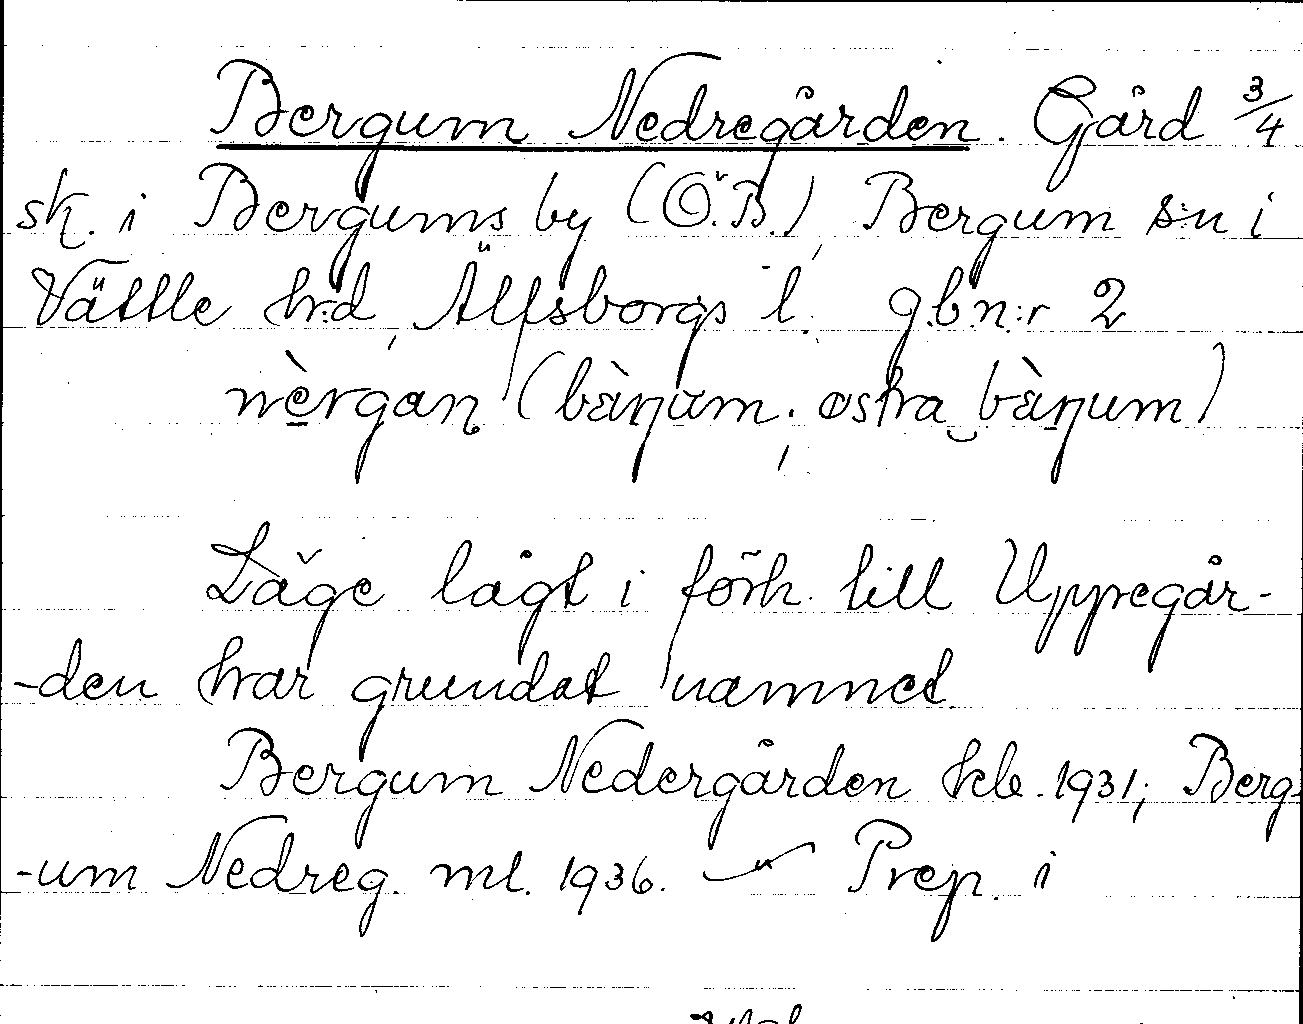 Bergum Nedregården. Gård 3/4
sk. i Bergums by (Ö.B.), Bergum s:n i
Vättle h:d, Älfsborgs l. gbn:r 2
nè̱rgaɳ (bàŋum; østra‿bàŋum)
Läge lågt i förh. till Uppregår-
-den har grundat namnet
Bergum Nedergården kb. 1931; Berg-
-um Nedreg. ml. 1936. — Prep. i